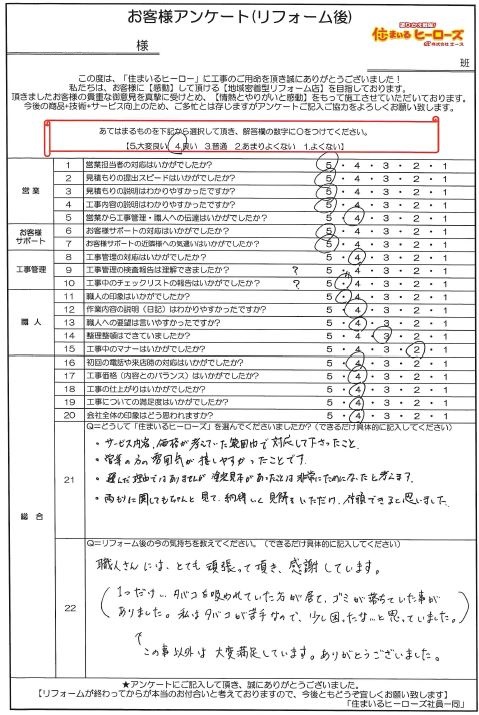 お客様アンケート(リフォーム後)
住まいるヒーローズ
株式会社エース
様
班
この度は、「住まいるヒーロー」に工事のご用命を頂き誠にありがとうございました！
私たちは、お客様に【感動】して頂ける【地域密着型リフォーム店】を目指しております。
頂きましたお客様の貴重な御意見を真摯に受けとめ、【情熱とやりがいと感動】をもって施工させていただいております。
今後の商品+技術+サービス向上のため、ご多忙とは存じますがアンケートにご記入ご協力をよろしくお願い致します。
あてはまるものを下記から選択して頂き、解答欄の数字に○をつけてください。
【5.大変良い 4.良い 3.普通 2.あまりよくない 1.よくない】
営業
1 営業担当者の対応はいかがでしたか? 5・4・3・2・1
2 見積もりの提出スピードはいかがでしたか? 5・4・3・2・1
3 見積もりの説明はわかりやすかったですか? 5・4・3・2・1
4 工事内容の説明はわかりやすかったですか? 5・4・3・2・1
5 営業から工事管理・職人への伝達はいかがでしたか? 5・4・3・2・1
お客様サポート
6 お客様サポートの対応はいかがでしたか? 5・4・3・2・1
7 お客様サポートの近隣様への気遣いはいかがでしたか? 5・4・3・2・1
工事管理
8 工事管理の対応はいかがでしたか? 5・4・3・2・1
9 工事管理の検査報告は理解できましたか? ? 5・4・3・2・1
10 工事中のチェックリストの報告はいかがでしたか? ? 5・4・3・2・1
職人
11 職人の印象はいかがでしたか? 5・4・3・2・1
12 作業内容の説明(日記)はわかりやすかったですか? 5・4・3・2・1
13 職人への要望は言いやすかったですか? 5・4・3・2・1
14 整理整頓はできていましたか? 5・4・3・2・1
15 工事中のマナーはいかがでしたか? 5・4・3・2・1
総合
16 初回の電話や来店時の対応はいかがでしたか? 5・4・3・2・1
17 工事価格(内容とのバランス)はいかがでしたか? 5・4・3・2・1
18 工事の仕上がりはいかがでしたか? 5・4・3・2・1
19 工事についての満足度はいかがでしたか? 5・4・3・2・1
20 会社全体の印象はどう思われますか? 5・4・3・2・1
21
Q=どうして「住まいるヒーローズ」を選んでくださいましたか?(できるだけ具体的に記入してください)
・サービス内容、価格が考えていた範囲内で対応して下さったこと。
・営業の方の雰囲気が接しやすかったことです。
・選んだ理由ではありませんが 見本があったことは非常にためになったと考えます。
・雨もりに関してもちゃんと見て、納得いく見解をいただけ、信頼できると思いました。
22
Q=リフォーム後の今の気持ちを教えてください。(できるだけ具体的に記入してください)
職人さんには、とても頑張って頂き、感謝しています。
(1つだけ… タバコを吸われていた方が居て、ゴミが落ちていた事が
ありました。私はタバコが苦手なので、少し困ったな…と思っていました。)
この事以外は 大変満足しています。ありがとうございました。
★アンケートにご記入して頂き、誠にありがとうございました。
【リフォームが終わってからが本当のお付合いと考えておりますので、今後ともどうぞ宜しくお願い致します】
「住まいるヒーローズ社員一同」